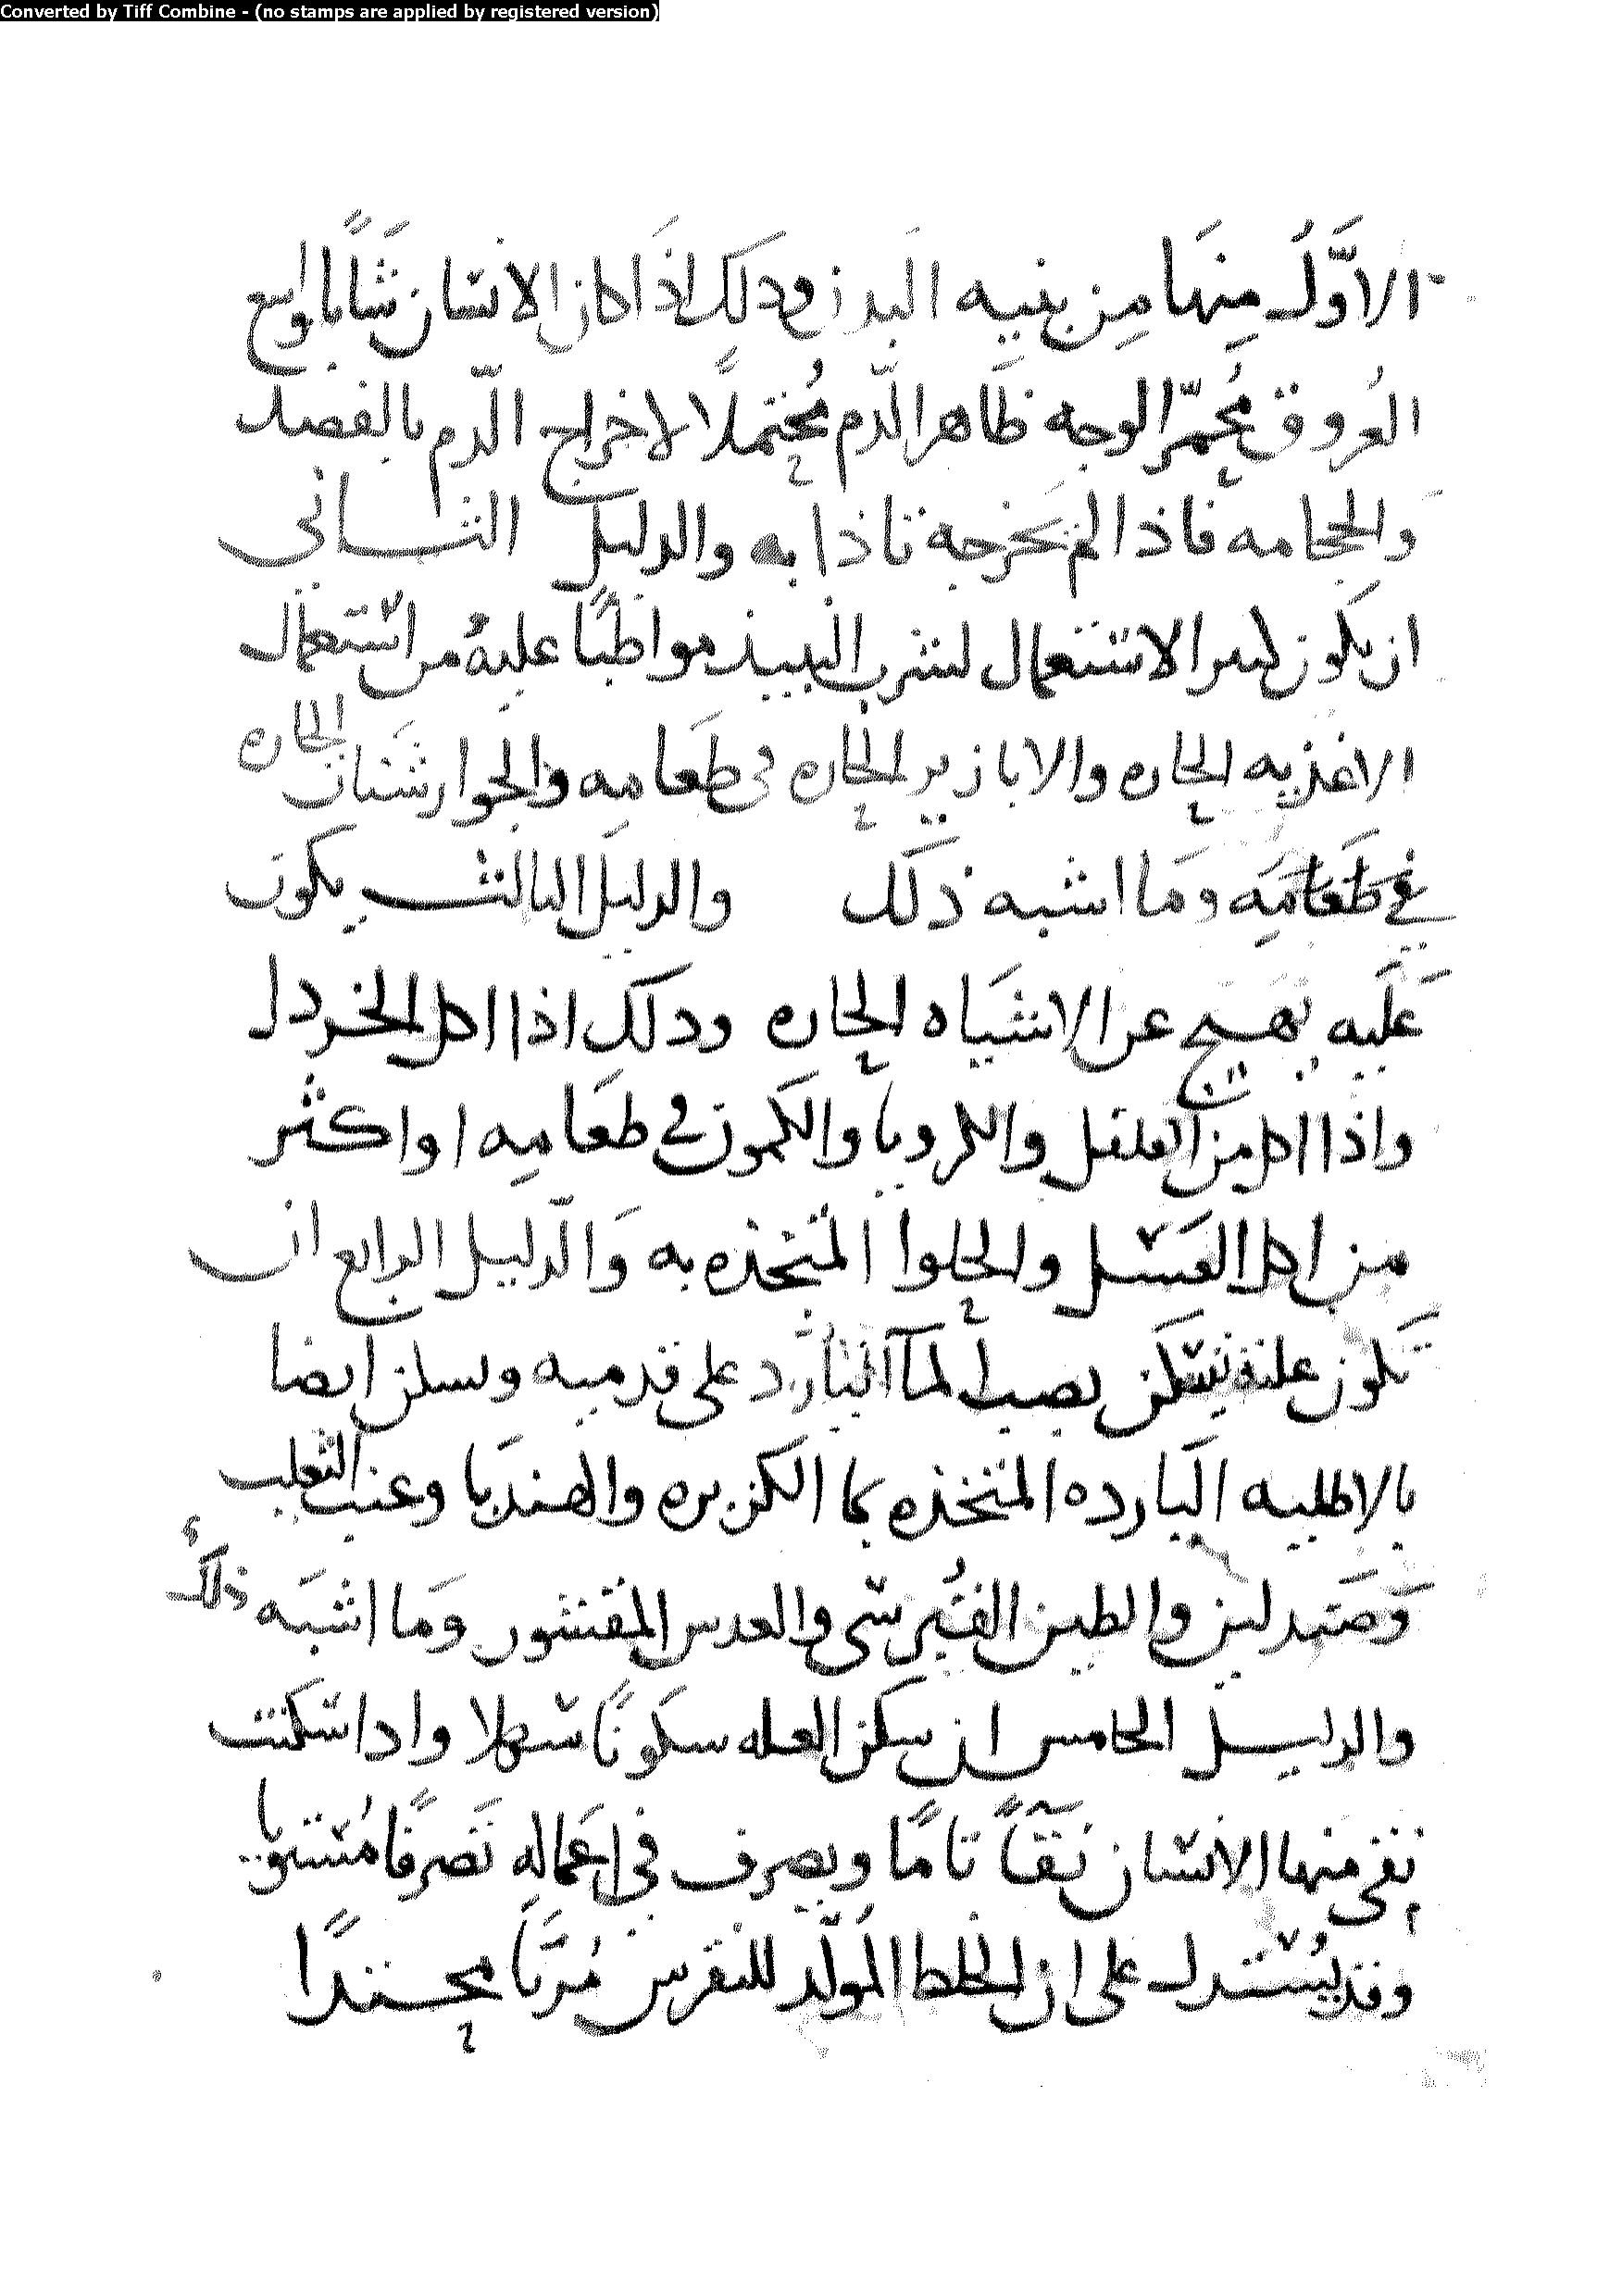 Converted by Tiff Combine - (no stamps are applied by registered version)
الاوَّلُ مِنهَا مِن بنيه البدن وذلك اذَا كان الانسان شَابًا واسع
العُروق مُحمّر الوجه ظَاهر الدّم مُحتملًا لاخراج الدّم بالفصد
والحجامه فاذا لم يَخرجه تاذا به والدليل الثاني
ان يكون كثير الاستعمال لشرب النبيذ مواظبًا عليهُ من استعمال
الاغذيه الحاره والابازير الحاره فى طَعامِه والجوارشَنات الحاره
في طَعَامَه ومَا اشبه ذلك والدليل الثالث يكون
عَليه تهيج عن الاشيَاء الحاره وذلك اذا اكل الخردل
واذا اكل من الفلفل والكرويا والكَمون في طعَامِه او اكثر
من اكل العَسل والحلوا المتخذه به وَالدّليل الرابع ان
تَكون علته تسكن بصب الماء البَارد على قدميه وتسكن ايضا
بالاطليه البَارده المتخذه بماء الكزبره والهندَبا وعنب الثعلب
وصَندلين والطين القبرسى والعدس المقشور ومَا اشبَه ذلك
والدليل الخامس ان تسكن العله سكونًا سهلا واذا سكنت
نقى منها الانسان نَقآءً تامًا ويصرف في اعَمالهِ تَصرفًا مُستويا
وقد يُستدل على ان الخلط المَولّد للنقرس مُرَّيا محتدًا